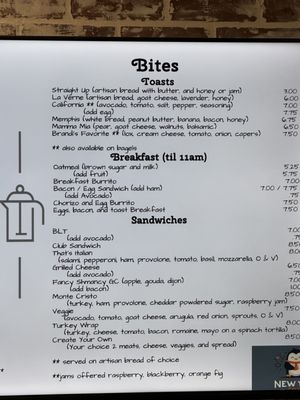 Bites
Toasts
Straight Up (artisan bread with butter, and honey or jam) 3.00
La Verne (artisan bread, goat cheese, lavender, honey) 6.00
California ** (avocado, tomato, salt, pepper, seasoning) 7.00
(add egg) 7.75
Memphis (white bread, peanut butter, banana, bacon, honey) 6.75
Mamma Mia (pear, goat cheese, walnuts, balsamic) 6.50
Brandi's Favorite ** (lox, cream cheese, tomato, onion, capers) 7.50
** also available on bagels
Breakfast (til 11am)
Oatmeal (brown sugar and milk) 5.25
(add fruit) 5.75
Breakfast Burrito 7.00
Bacon / Egg Sandwich (add ham) 7.00 / 7.75
(add Avocado) .75
Chorizo and Egg Burrito 7.50
Eggs, bacon, and toast Breakfast 7.50
Sandwiches
BLT 7.00
(add avocado) .75
Club Sandwich 8.50
That's Italian 8.00
(salami, pepperoni, ham, provolone, tomato, basil, mozzarella, O & V)
Grilled Cheese 
(add avocado)
Fancy Shmancy GC (apple, gouda, dijon) 7.00
(add bacon) 1.00
Monte Cristo 8.50
(turkey, ham, provolone, cheddar powdered sugar, raspberry jam)
Veggie 7.50
(avocado, tomato, goat cheese, arugula, red onion, sprouts, O & V)
Turkey Wrap
(turkey, cheese, tomato, bacon, romaine, mayo on a spinach tortilla)
Create Your Own 8.50
(Your choice 2 meats, cheese, veggies, and spread)
** served on artisan bread of choice
**jams offered raspberry, blackberry, orange fig
NEW Y